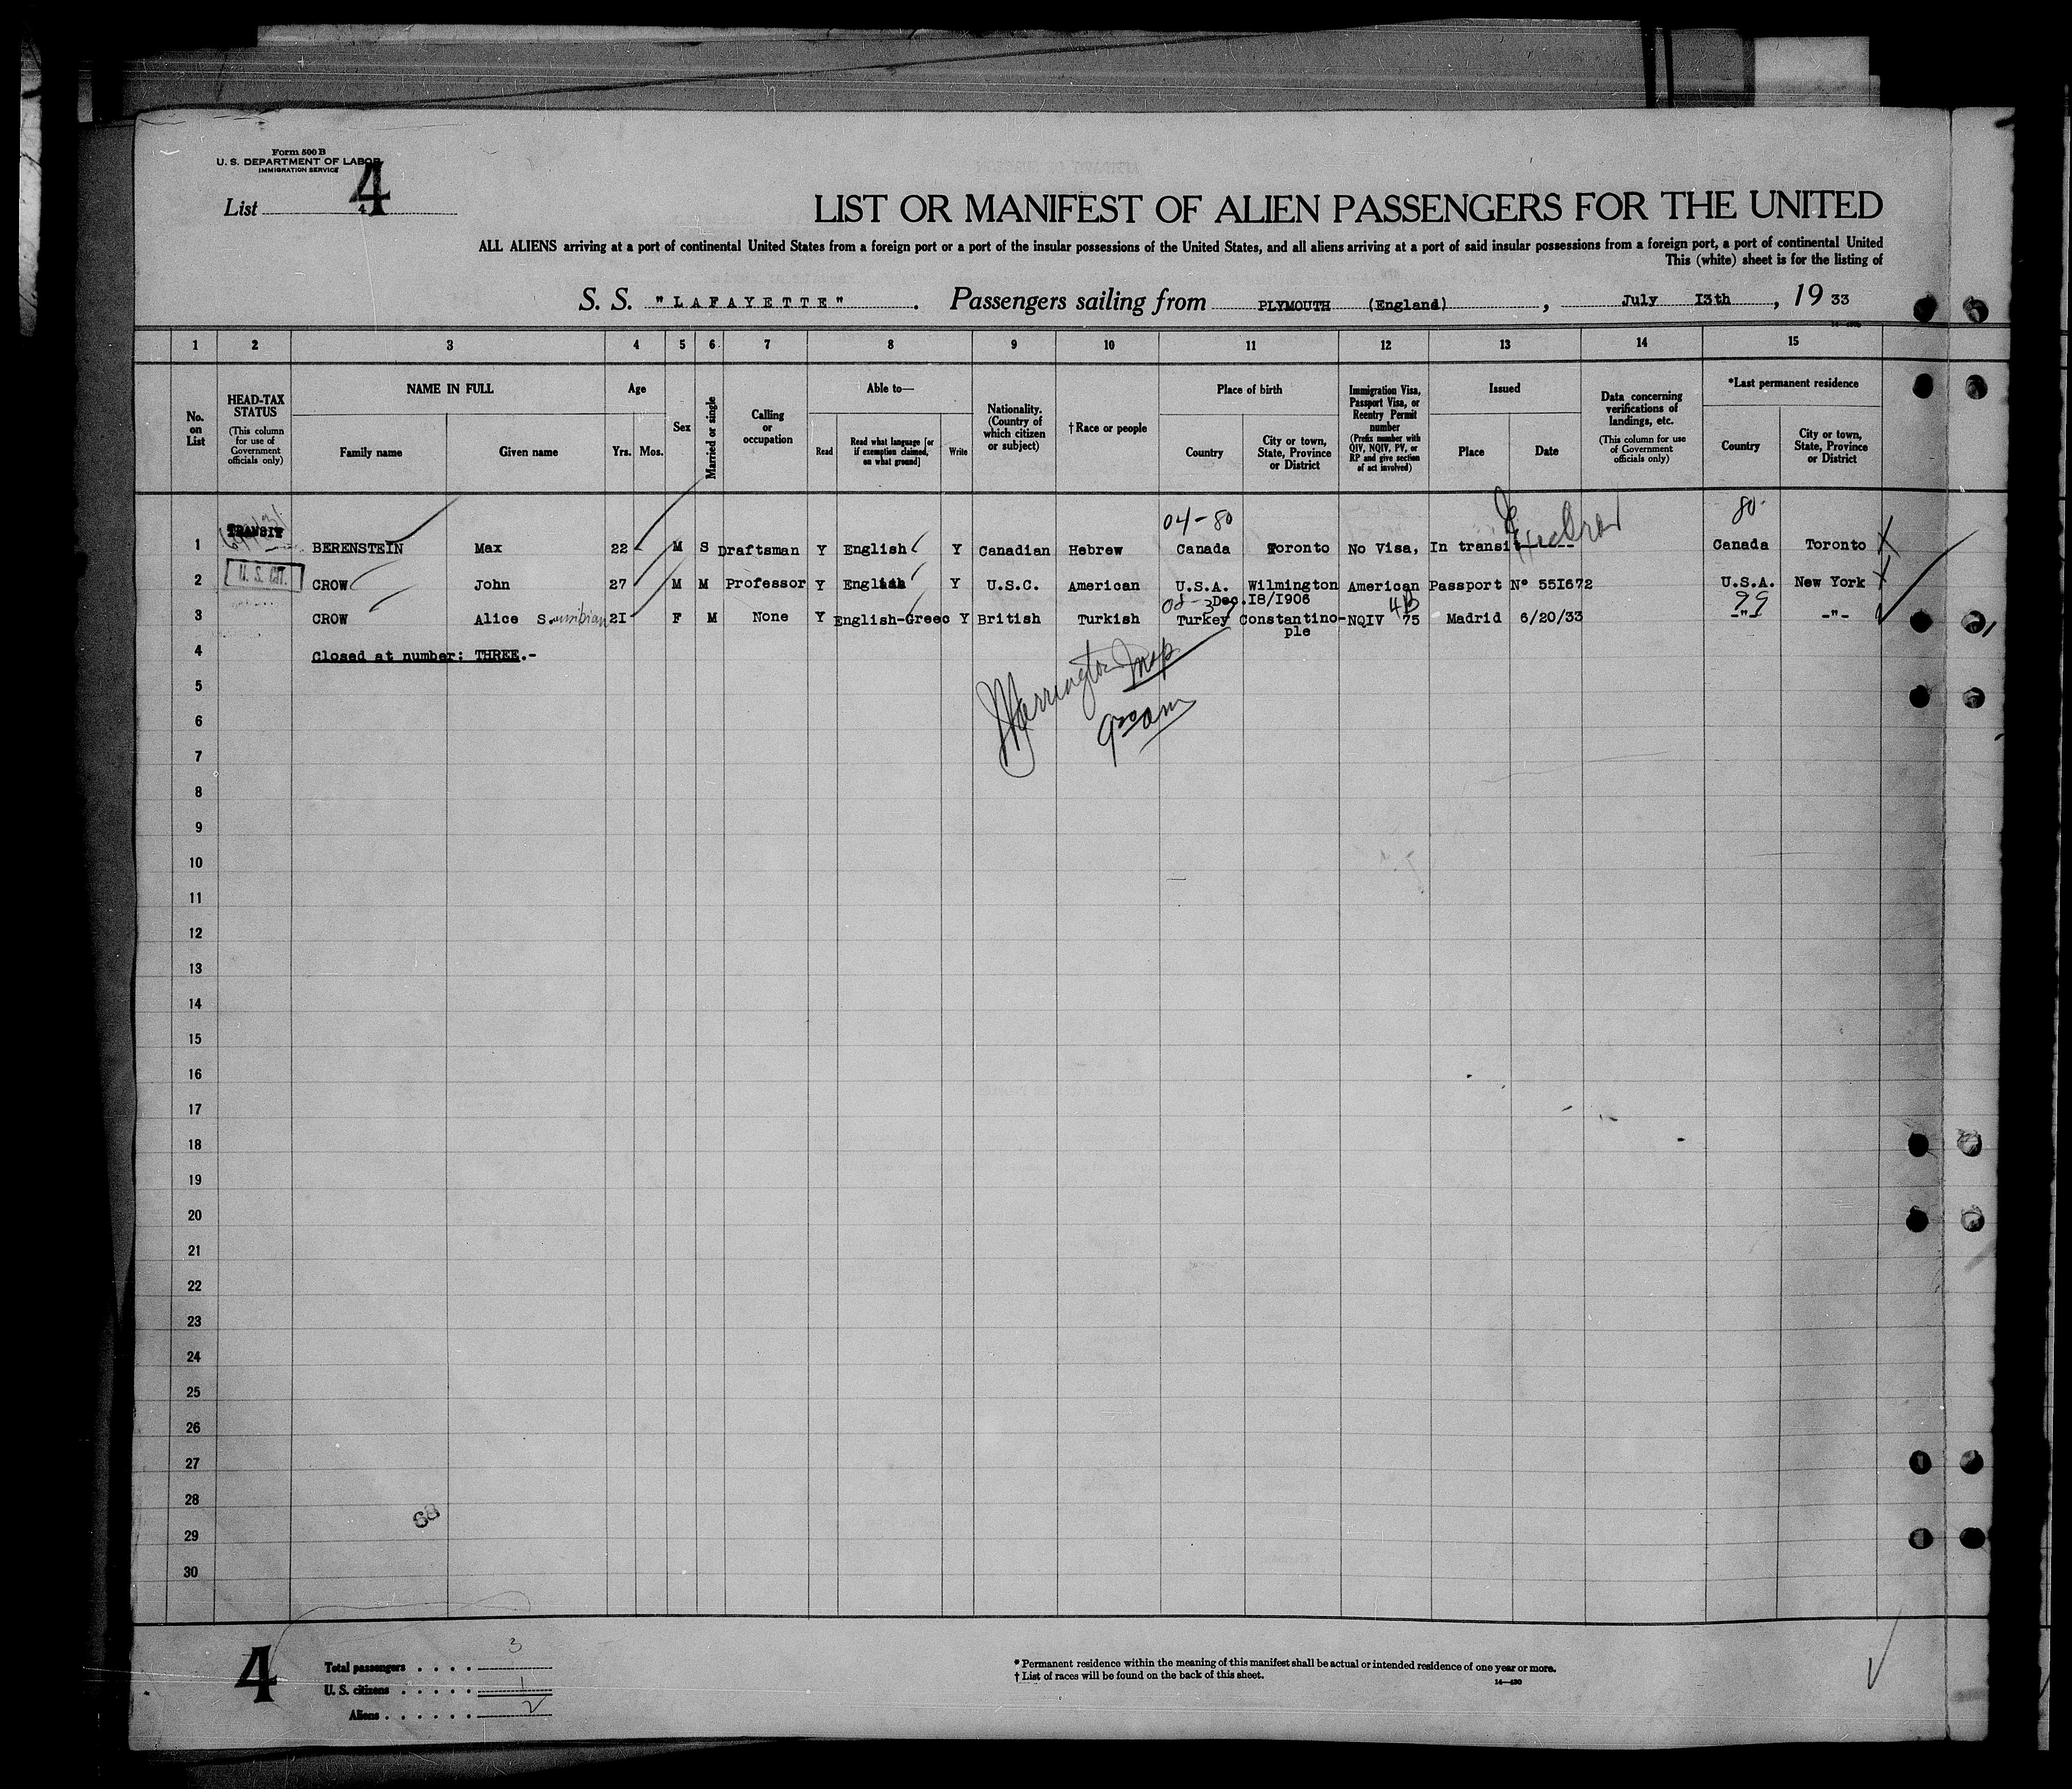 Form 500 B
U. S. DEPARTMENT OF LABOR
IMMIGRATION SERVICE
List 4 4
LIST OR MANIFEST OF ALIEN PASSENGERS FOR THE UNITED
ALL ALIENS arriving at a port of continental United States from a foreign port or a port of the insular possessions of the United States, and all aliens arriving at a port of said insular possessions from a foreign port, a port of continental United
This (white) sheet is for the listing of
S. S. "LAFAYETTE". Passengers sailing from PLYMOUTH (England), July I3th, 19 33
1 2 3 4 5 6 7 8 9 10 11 12 13 14 15
No. on List
HEAD-TAX STATUS (This column for use of Government officials only)
NAME IN FULL
Family name Given name
Age
Yrs. Mos.
Sex
Married or single
Calling or occupation
Able to—
Read
Read what language [or if exemption claimed, on what ground]
Write
Nationality. (Country of which citizen or subject)
†Race or people
Place of birth
Country
City or town, State, Province or District
Immigration Visa, Passport Visa, or Reentry Permit number (Prefix number with QIV, NQIV, PV, or RP and give section of act involved)
Issued
Place Date
Data concerning verifications of landings, etc. (This column for use of Government officials only)
*Last permanent residence
Country
City or town, State, Province or District
04-80 80
TRANSIT
1 BERENSTEIN Max 22 M S Draftsman Y English Y Canadian Hebrew Canada Toronto No Visa, In transit Canada Toronto
U. S. CIT.
2 CROW John 27 M M Professor Y English Y U.S.C. American U.S.A. Wilmington American Passport N° 55I672 U.S.A. New York
Dec.I8/I906 4B 99
3 CROW Alice S. 2I F M None Y English-Greec Y British Turkish Turkey Constantino- NQIV 75 Madrid 6/20/33 -"- -"-
ple
4 Closed at number: THREE.-
5
6
7
8
9
10
11
12
13
14
15
16
17
18
19
20
21
22
23
24
25
26
27
28
29
30
Harrington
900am
68
4
Total passengers . . . . 3
U. S. citizens . . . . . 1
Aliens . . . . . . 2
* Permanent residence within the meaning of this manifest shall be actual or intended residence of one year or more.
† List of races will be found on the back of this sheet.
14—430